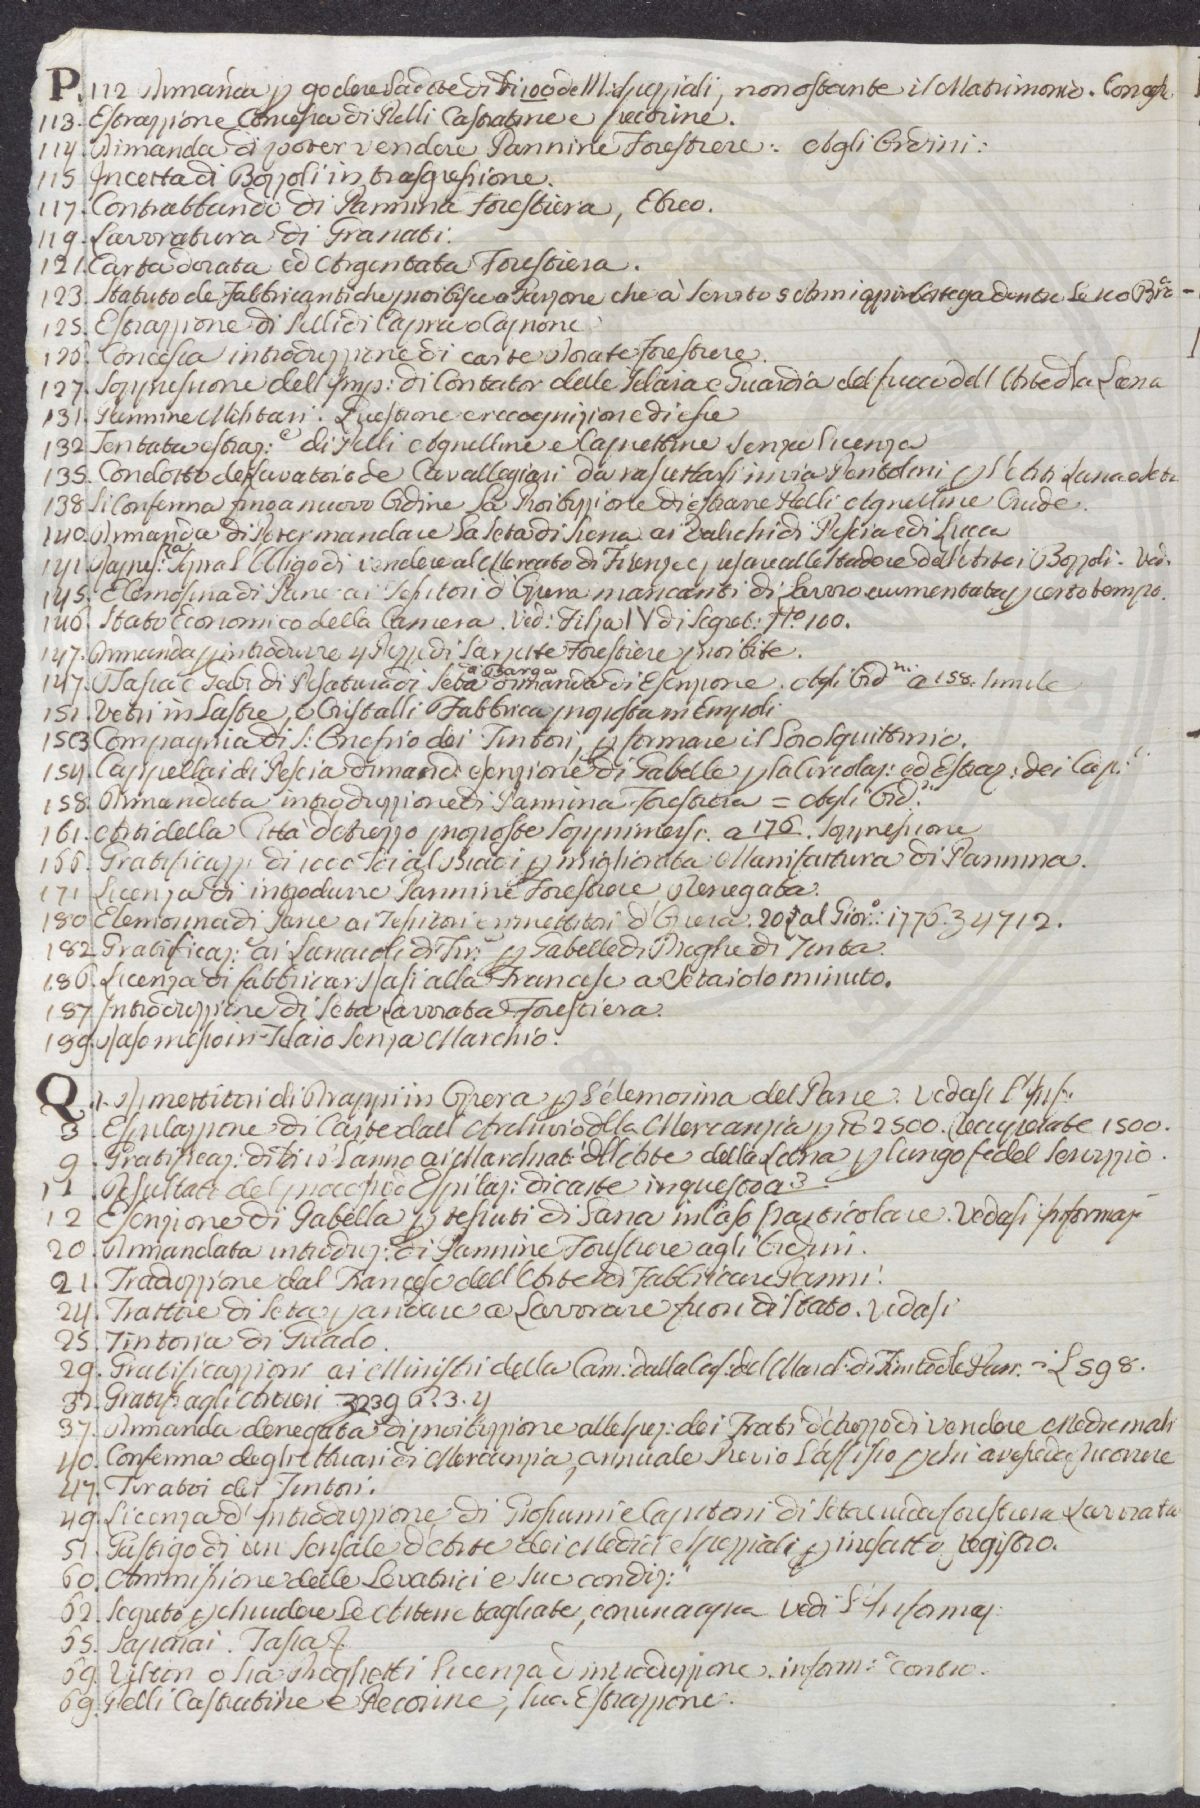 P. 112 Dimanda p godere la dote di 100 dell Speziali, non ostante il Matrimonio. Con
113. Estrazzione Concessa di Pelli Castratine e Pecorine.
114. Dimanda di poter vendere Pannine Forestiere: Agli Ordini:
115 Incetta di Bozzoli in trasgressione.
117. Contrabbando di Pannina Forestiera, Ebreo.
119. Lavoratura di Granati.
121. Carta dorata ed Argentata Forestiera.
123. Statuto de Fabbricanti che proibisce a Garzone che à servito 5 Anni aprir bottega dentro le 100 Bra
125. Estrazzione di Pelli di Capra o Caprone
126. Concessa introduzzione di carte Dorate Forestiere.
127. Soppressione dell'Imp: di Contator delle Telaia e Guardia del fuoco dell'Arte d la Lana
131. Pannine Militari. Questione e recognizione di esse
132. Tentata estraz:e di Pelli Agnelline e Caprettine senza licenza
135. Condotto de Lavatoi de Cavalleggieri da rasettarsi in via Pentolini p l'Arti Lana e Seta
138 Si Conferma fino a nuovo Ordine la Proibizzione di estrarre Pelli Agnelline Crude.
140. Dimanda di Poter mandare la Seta di Siena ai Valichi di Pescia e di Lucca
141. Rapres:ta sopra l'Obligo di vendere al Mercato di Firenze e pesare alle Stadere dell'Arte i Bozzoli. Ved.
145. Elemosina di Pane ai Tessitori d'Opera mancanti di lavoro aumentata p certo tempo.
146. Stato Economico della Camera. Ved: Filza IV di Segret: N.o 100.
147. Dimanda p introdurre 4 Pezze di Forestiere proibite.
147. Tassa e Fab: di Pesatura di Seta a Barga dimanda di Esenzione. Agli Ord.ni a 158. simile
151. Vetri in Lastre, e Cristalli Fabbrica proposta in Empoli
153 Compagnia di S: Onofrio dei Tintori, p formare il loro Squittinio.
154. Cappellai di Pescia dimand: esenzione di Gabelle p la Circolaz: ed Estraz: dei Cap:i
158. Dimandata introduzzione di Pannina Forestiera = Agli Ord:ni
161. Arti della Città d'Arezzo proposte sopprimersi. a 176. Soppressione
166. Gratificaz: di 1000 Sci al p migliorata Manifattura di Pannina.
171 Licenza di introdurre Pannine Forestiere, Denegata.
180 Elemosina di Pane ai Tessitori e rimettitori d'Opera. 20 al Gior:o: 1776. 34712.
182 Gratificaz:e ai Lanaioli di Fir:e p Gabelle di Pieghe di Tinta.
186. Licenza di fabbricar Rasi alla Francese a Setaiolo minuto.
187. Introduzzione di Seta Lavorata Forestiera.
189. Raso messo in Telaio senza Marchio.
Q. 1. Rimettitori di Drappi in Opera p l'elemosina del Pane. Vedasi l'Inf:
3. Espilazzione di Carte dall'Archivio della Mercanzia p 2500. Recuperate 1500.
9. Gratificaz: di 10 l'anno ai Mardnati dell'Arte della Lana p lungo fedel Servizzio.
11. Resultati del processo d'Espilaz: di carte in questo a 3.
12 Esenzione di Gabella p tessuti di Lana in Caso particolare. Vedasi Informaz:
20. Dimandata introduz: di Pannine Forestiere agli Ordini.
21. Traduzzione dal Francese dell'Arte di Fabbricare Panni.
24. Trattore di Seta p andare a Lavorare fuori di Stato. Vedasi
25. Tintoria di Guado.
29. Gratificazzioni ai Ministri della Cam: dalla Cas: del March: di Pan. - L 598.
32. Gratif: agli Attuari 3239 6. 3. 4
37. Dimanda denegata di proibizzione alle Spez: dei Frati d'Arezzo di vendere Medicinali
40. Conferma degli Attuari di Mercanzia, annuale previo l'affisso p chi avesse da ricorrere
47. Tiratoi dei Tintori.
49. Licenza d'Introduzzione di e Capitoni di Seta cruda forestiera Lavorata
51. Gastigo di un Sensale d'Arte dei Medici e Speziali p inesatto registro.
60. Ammissione delle Levatrici e sue condiz:i
62. Segreto p chiudere le Arterie tagliate, con una acqua Vedi l'Informaz:
65. Saponai. Tassa
69. o sia Licenza d'introduzzione. inform:e contro.
69. Pelli Castratine e Pecorine, sua Estrazzione.